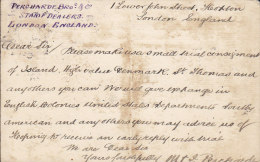 PERCHARDE BROS & Co
STAMP DEALERS.
LONDON. ENGLAND.
1 Lower John Street,
London England
Dear Sir
Please make us a small trial consignment
of Island, High value Denmark, St Thomas and
any others you can. We will give exchange in
English Colonies United States Departments
american and any others you may advise us of
Hoping to receive an early reply with trial
We are Dear Sir
Yours faithfully